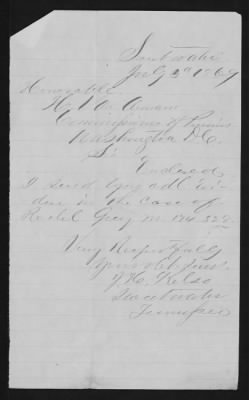 Sweetwater
July 3rd 1869
Honorable
H Van Aernam
Commissioner of Pensions
Washington D.C.
Sir
Enclosed
I send you adl evi-
dence in the case of
Gray No 174 528
Very Respectfully
Your obt Servt
J. H. Kelso
Sweetwater
Tennessee